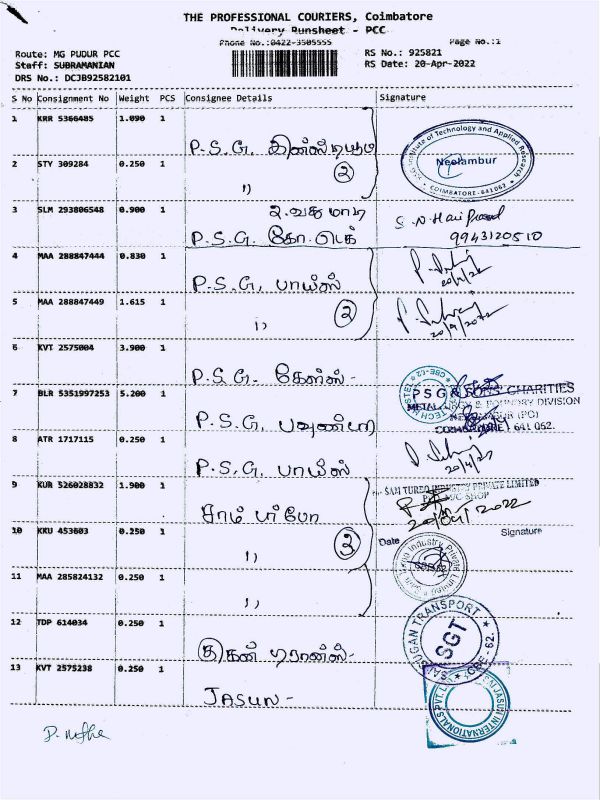 THE PROFESSIONAL COURIERS, Coimbatore
Delivery Runsheet - PCC
Phone No.:0422-3505555 Page No.:1
Route: MG PUDUR PCC RS No.: 925821
Staff: SUBRAMANIAN RS Date: 20-Apr-2022
DRS No.: DCJB92582101
S No Consignment No Weight PCS Consignee Details Signature
1 KRR 5366485 1.090 1
P.S.G.
2 STY 309284 0.250 1
2
Institute of Technology and Applied Research
Neelambur
COIMBATORE-641062
3 SLM 293806548 0.900 1
P.S.G. கோ.டெக்
9943120510
4 MAA 288847444 0.830 1
P.S.G. பாய்ஸ்
20/4/22
5 MAA 288847449 1.615 1
2
20/4/2022
6 KVT 2575004 3.900 1
P.S.G. கேர்ல்ஸ் -
7 BLR 5351997253 5.200 1
P.S.G. பவுண்டரி
PSG & SONS' CHARITIES
METALLURGY & FOUNDRY DIVISION
NEELAMBUR (PO)
COIMBATORE 641 062.
8 ATR 1717115 0.250 1
P.S.G. பாய்ஸ்
9 KUR 526028832 1.900 1
சாம் டர்போ
SAM TURBO INDUSTRY PRIVATE LIMITED
M/C SHOP
20/04/2022
10 KKU 453603 0.250 1
3
Date Signature
Turbo Industry Private Limited
11 MAA 285824132 0.250 1
12 TDP 614034 0.250 1
SAI SUGAN TRANSPORT
SGT
CBE-62.
13 KVT 2575238 0.250 1
JASUN -
JASUN INTERNATIONALS PVT. L